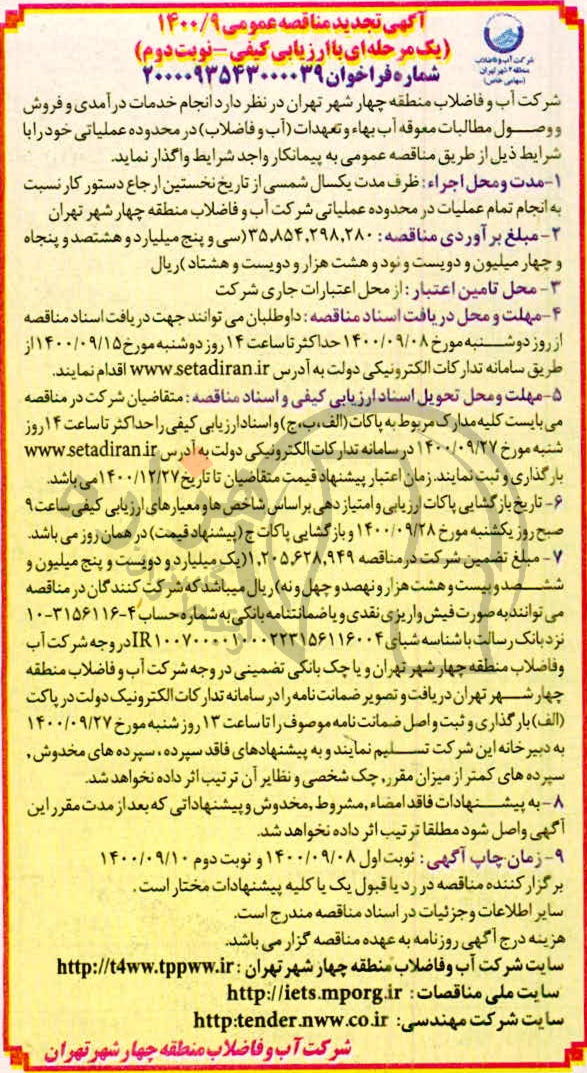 آگهی تجدید مناقصه عمومی ۱۴۰۰/۹
(یک مرحله‌ای با ارزیابی کیفی – نوبت دوم)
شماره فراخوان ۲۰۰۰۰۹۳۵۴۳۰۰۰۰۳۹
شرکت آب و فاضلاب
منطقه ۴ شهر تهران
(سهامی خاص)
شرکت آب و فاضلاب منطقه چهار شهر تهران در نظر دارد انجام خدمات درآمدی و فروش
و وصول مطالبات معوقه آب بهاء و تعهدات (آب و فاضلاب) در محدوده عملیاتی خود را با
شرایط ذیل از طریق مناقصه عمومی به پیمانکار واجد شرایط واگذار نماید.
۱-مدت و محل اجراء: ظرف مدت یکسال شمسی از تاریخ نخستین ارجاع دستور کار نسبت
به انجام تمام عملیات در محدوده عملیاتی شرکت آب و فاضلاب منطقه چهار شهر تهران
۲- مبلغ برآوردی مناقصه: ۳۵,۸۵۴,۲۹۸,۲۸۰ (سی و پنج میلیارد و هشتصد و پنجاه
و چهار میلیون و دویست و نود و هشت هزار و دویست و هشتاد) ریال
۳- محل تامین اعتبار: از محل اعتبارات جاری شرکت
۴-مهلت و محل دریافت اسناد مناقصه: داوطلبان می توانند جهت دریافت اسناد مناقصه
از روز دوشنبه مورخ ۱۴۰۰/۰۹/۰۸ حداکثر تا ساعت ۱۴ روز دوشنبه مورخ ۱۴۰۰/۰۹/۱۵ از
طریق سامانه تدارکات الکترونیکی دولت به آدرس www.setadiran.ir اقدام نمایند.
۵-مهلت و محل تحویل اسناد ارزیابی کیفی و اسناد مناقصه: متقاضیان شرکت در مناقصه
می بایست کلیه مدارک مربوط به پاکات (الف، ب، ج) و اسناد ارزیابی کیفی را حداکثر تا ساعت ۱۴ روز
شنبه مورخ ۱۴۰۰/۰۹/۲۷ در سامانه تدارکات الکترونیکی دولت به آدرس www.setadiran.ir
بارگذاری و ثبت نمایند. زمان اعتبار پیشنهاد قیمت متقاضیان تا تاریخ ۱۴۰۰/۱۲/۲۷ می باشد.
۶- تاریخ بازگشایی پاکات ارزیابی و امتیاز دهی براساس شاخص ها و معیارهای ارزیابی کیفی ساعت ۹
صبح روز یکشنبه مورخ ۱۴۰۰/۰۹/۲۸ و بازگشایی پاکات ج (پیشنهاد قیمت) در همان روز می باشد.
۷- مبلغ تضمین شرکت در مناقصه ۱,۲۰۵,۶۲۸,۹۴۹ (یک میلیارد و دویست و پنج میلیون و
ششصد و بیست و هشت هزار و نهصد و چهل و نه) ریال میباشد که شرکت کنندگان در مناقصه
می توانند به صورت فیش واریزی نقدی و یا ضمانتنامه بانکی به شماره حساب ۴-۳۱۵۶۱۱۶-۱۰
نزد بانک رسالت با شناسه شبای IR۱۰۰۷۰۰۰۰۱۰۰۰۲۲۳۱۵۶۱۱۶۰۰۴ در وجه شرکت آب
وفاضلاب منطقه چهار شهر تهران و یا چک بانکی تضمینی در وجه شرکت آب و فاضلاب منطقه
چهار شهر تهران دریافت و تصویر ضمانت نامه را در سامانه تدارکات الکترونیک دولت در پاکت
(الف) بارگذاری و ثبت و اصل ضمانت نامه موصوف را تا ساعت ۱۳ روز شنبه مورخ ۱۴۰۰/۰۹/۲۷
به دبیرخانه این شرکت تسلیم نمایند و به پیشنهادهای فاقد سپرده، سپرده های مخدوش,
سپرده های کمتر از میزان مقرر, چک شخصی و نظایر آن ترتیب اثر داده نخواهد شد.
۸- به پیشنهادات فاقد امضاء ,مشروط ,مخدوش و پیشنهاداتی که بعد از مدت مقرر این
آگهی واصل شود مطلقا ترتیب اثر داده نخواهد شد.
۹- زمان چاپ آگهی: نوبت اول ۱۴۰۰/۰۹/۰۸ و نوبت دوم ۱۴۰۰/۰۹/۱۰
برگزار کننده مناقصه در رد یا قبول یک یا کلیه پیشنهادات مختار است.
سایر اطلاعات و جزئیات در اسناد مناقصه مندرج است.
هزینه درج آگهی روزنامه به عهده مناقصه گزار می باشد.
سایت شرکت آب وفاضلاب منطقه چهار شهر تهران: http://t4ww.tppww.ir
سایت ملی مناقصات: http://iets.mporg.ir
سایت شرکت مهندسی: http:tender.nww.co.ir
شرکت آب و فاضلاب منطقه چهار شهر تهران